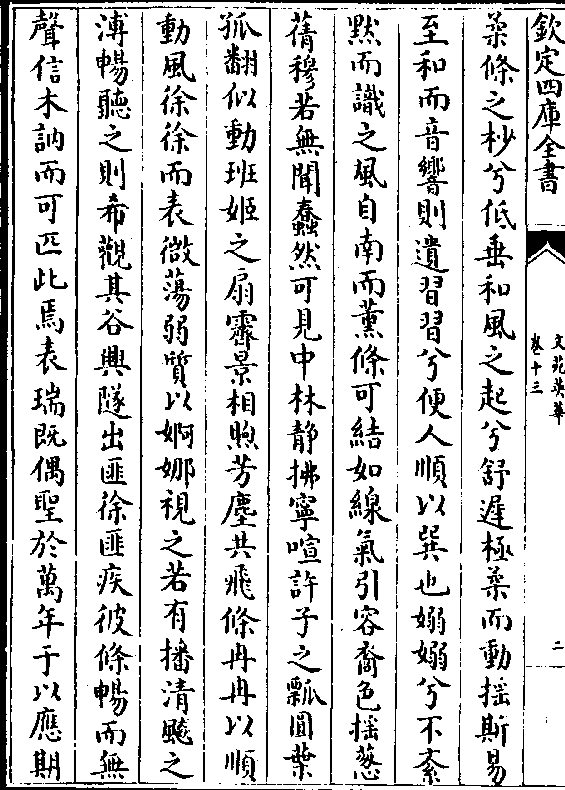 欽定四庫全書
文苑英華
卷十三
二
柔條之杪兮低垂和風之起兮舒遲極柔而動揺斯易
至和而音響則遺習習兮便人順以巽也嫋嫋兮不紊
黙而識之風自南而薫條可結如線氣引容裔色揺葱
蒨穆若無聞蠢然可見中林静拂寧喧許子之瓢圓葉
孤翻似動班姬之扇霽景相煦芳塵共飛條冉冉以順
動風徐徐而表微蕩弱質以婀娜視之若有播清飈之
溥暢聽之則希觀其谷興隧出匪徐匪疾彼條暢而無
聲信木訥而可匹此焉表瑞既偶聖於萬年于以應期